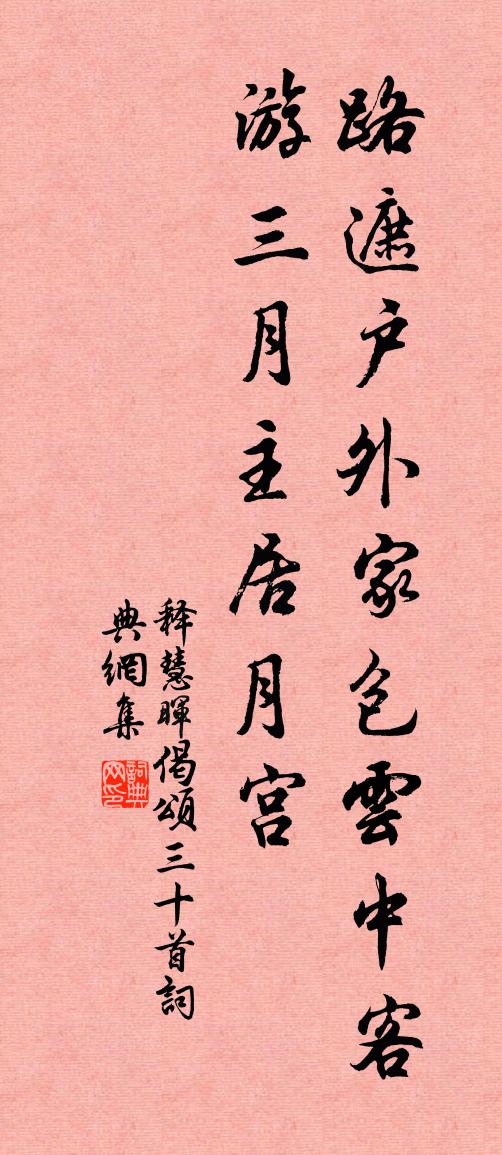 路遮户外家包雲中客
游三月主居月宫
释慧暉偈頌三十首詞
典網集
詞典网印